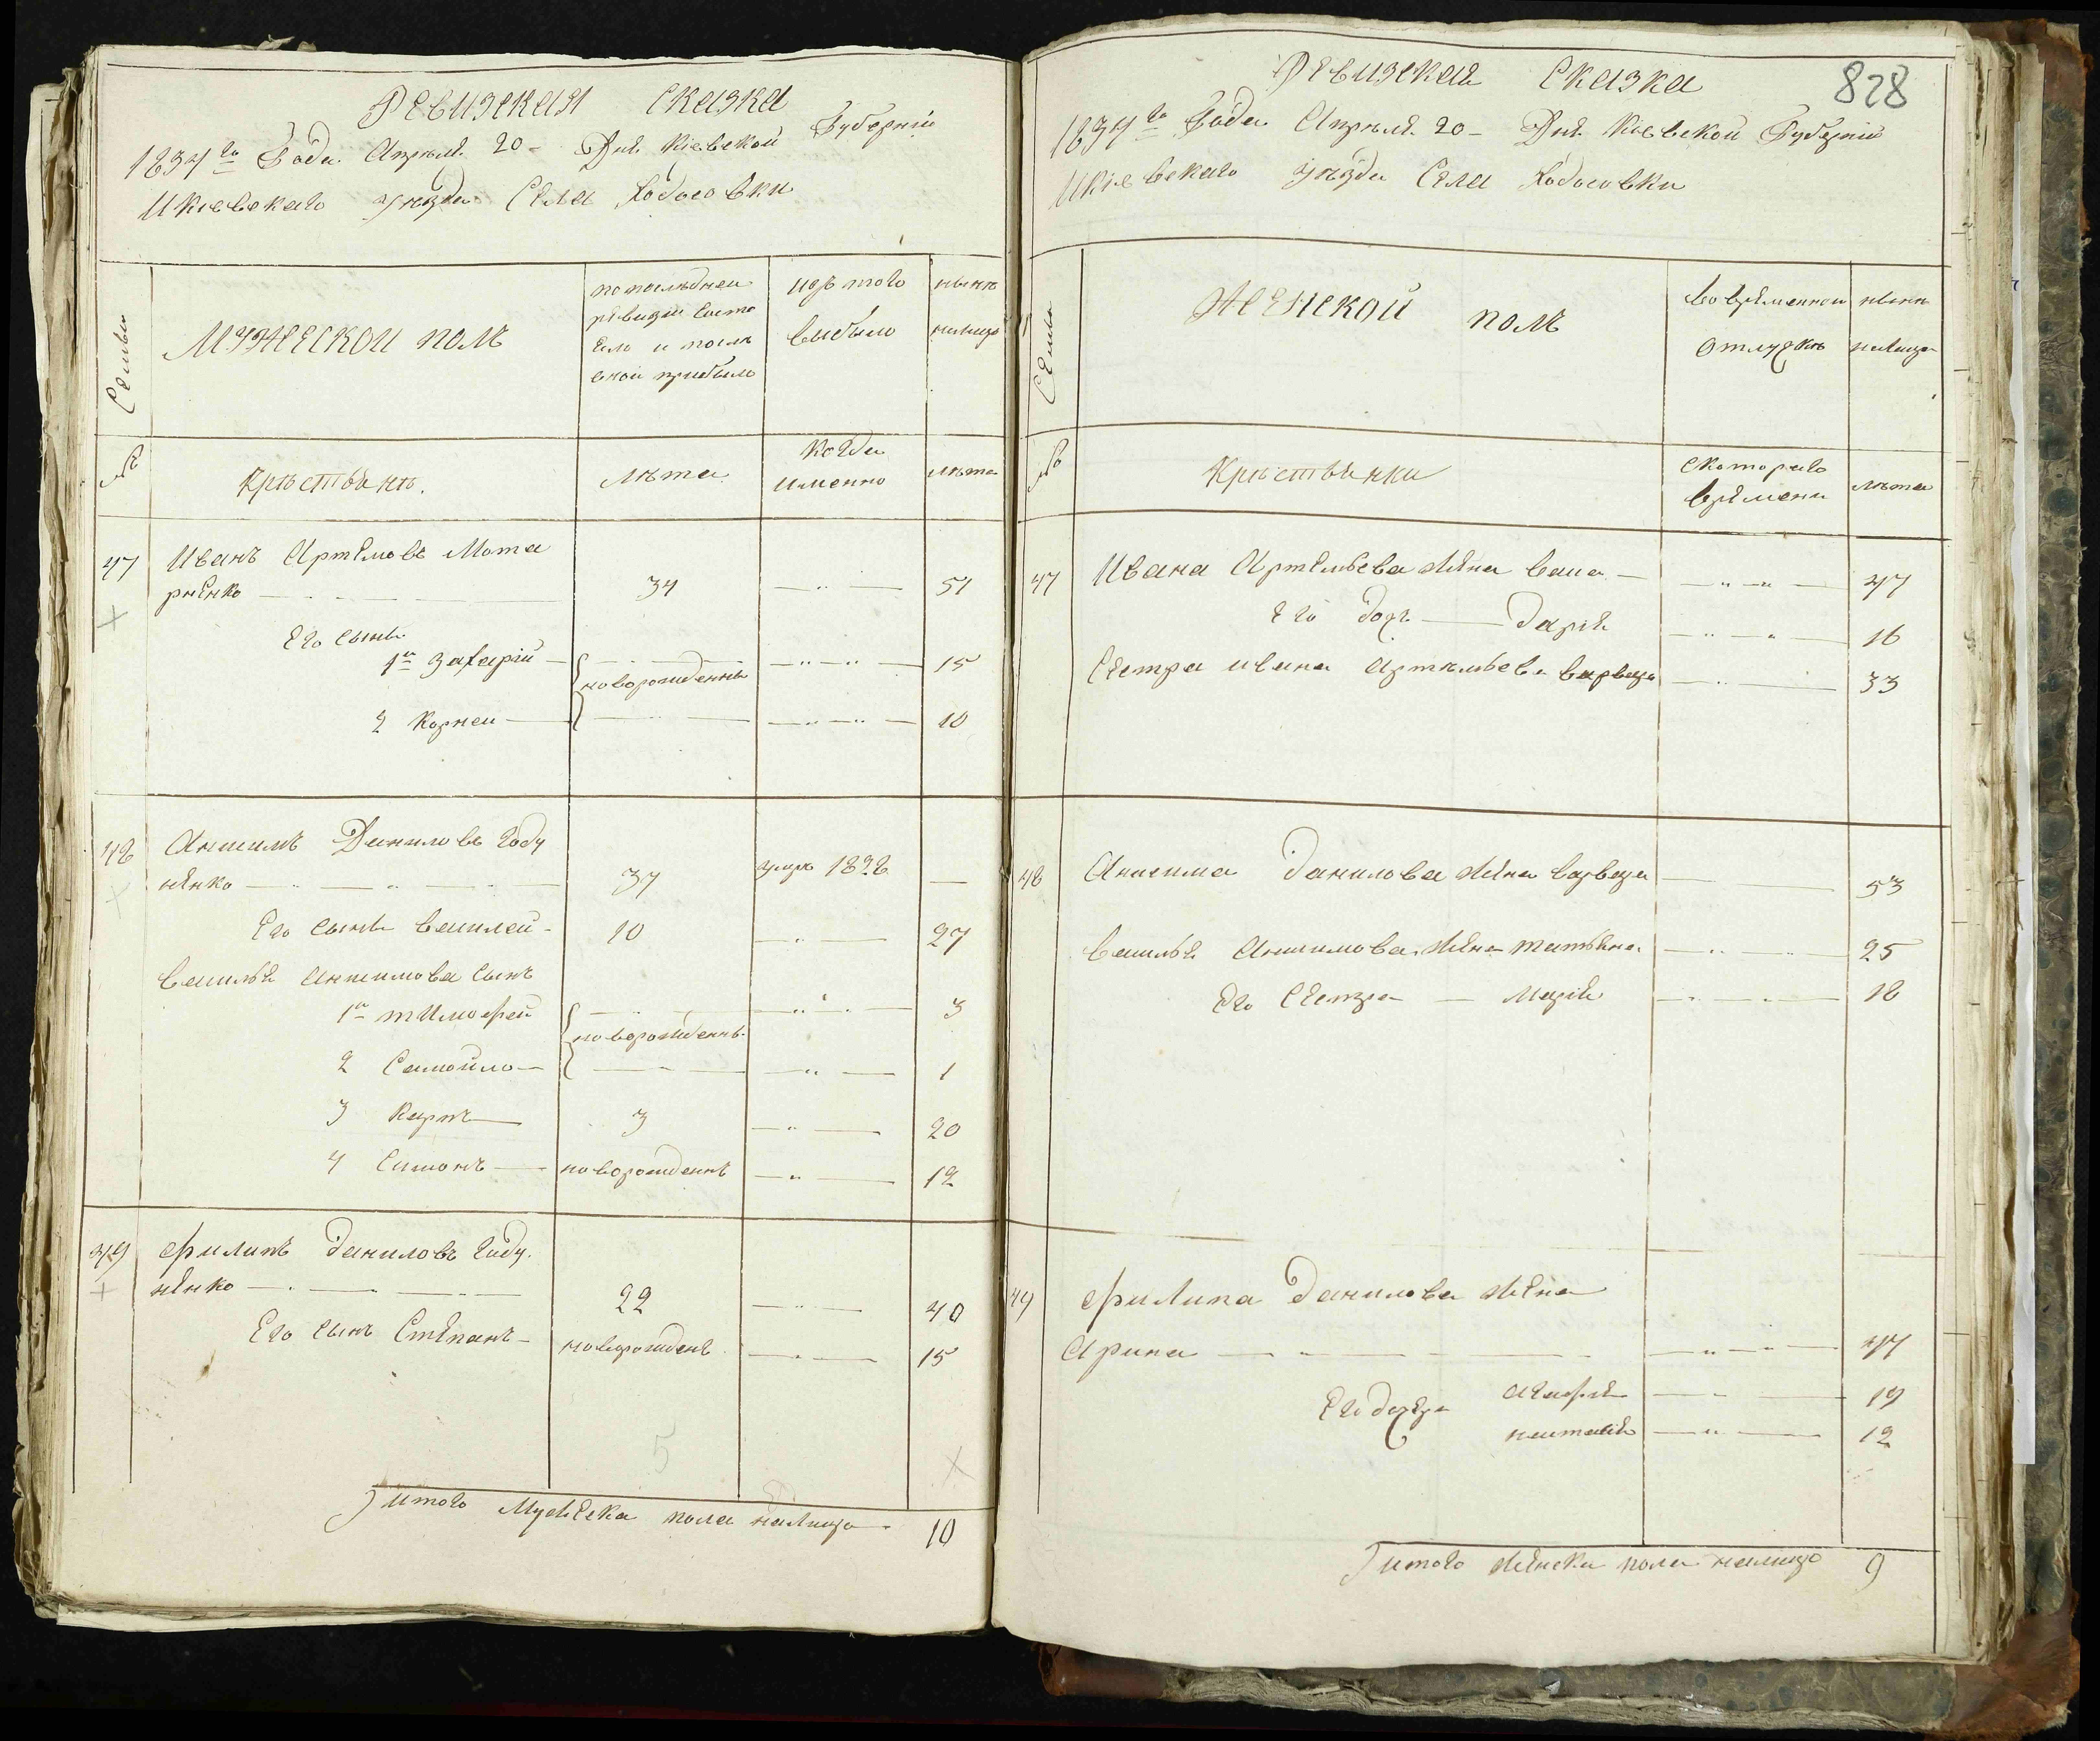 Ревизская сказка
1834го Года Апреля 20 - Дня Кіевской Губерніи
Икіевскаго уѣзда Села Ходосовки
Семьи
МУЖЕСКОЙ ПОЛЪ
попослѣдней
ревизіи состо
яло и посля
оной прибыло
изъ того
выбыло
нынѣ
налицо
№
Крѣстьянѣ.
лѣта
Когда
именно
лѣта
47 Иванъ Артемовъ Мота
рѣнко 34 51
Его сынъ
1й Захарій 15
новорожденны
2 Корней 10
48 Анисимъ Даниловъ Году
нѣнко 37 умръ 1828
Его сынъ Василей 10 27
Василья Анисимова сынъ
1й тимофей 3
новорожденнъ
2 Самойло 1
3 Карпъ 3 20
4 Симонъ новорожденнъ 12
49 Филипъ Даниловъ Году
нѣнко 22 40
Его сынъ Степанъ новорожденъ 15
5
Итого Мужеска пола налицо 10
828
Ревизская Сказка
1834го Года Апреля 20 - Дня Кіевской Губерніи
Икіевскаго уѣзда Села Ходосовки
Семьи
ЖЕНСКОЙ ПОЛЪ
вовременной
отлучкѣ
нынѣ
налицо
№
Крѣстьянки
скотораго
времени
лѣта
47 Ивана Артемьева жена Васа 47
Его дочь Дарія 16
Сестра ивана Артемьева варвара 33
48 Анисима Данилова жена варвара 53
Василья Анисимова жена татьяна 25
Его Сестра Марія 18
49 Филипа Данилова жена
Арина 37
Его дочеря Агафія 19
настасія 12
Итого женска пола налицо 9